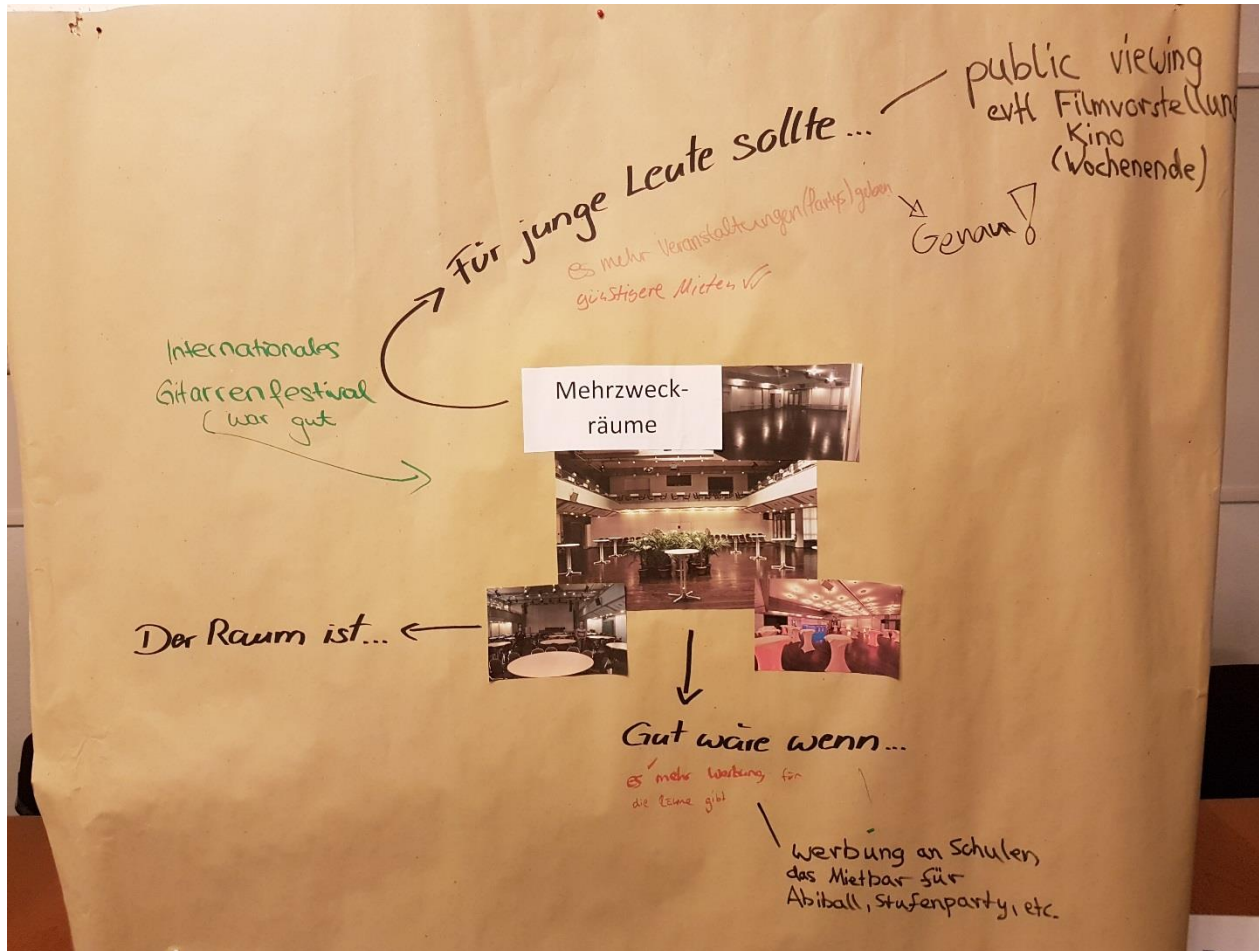 public viewing
evtl Filmvorstellung
Kino
(Wochenende)
Für junge Leute sollte...
es mehr Veranstaltungen (Partys) geben
Genau!
günstigere Mieten
Internationales
Gitarrenfestival
war gut
Mehrzweck-
räume
Der Raum ist...
Gut wäre wenn...
es mehr Werbung für
die Räume gibt
werbung an Schulen,
das Mietbar für
Abiball, Stufenparty, etc.